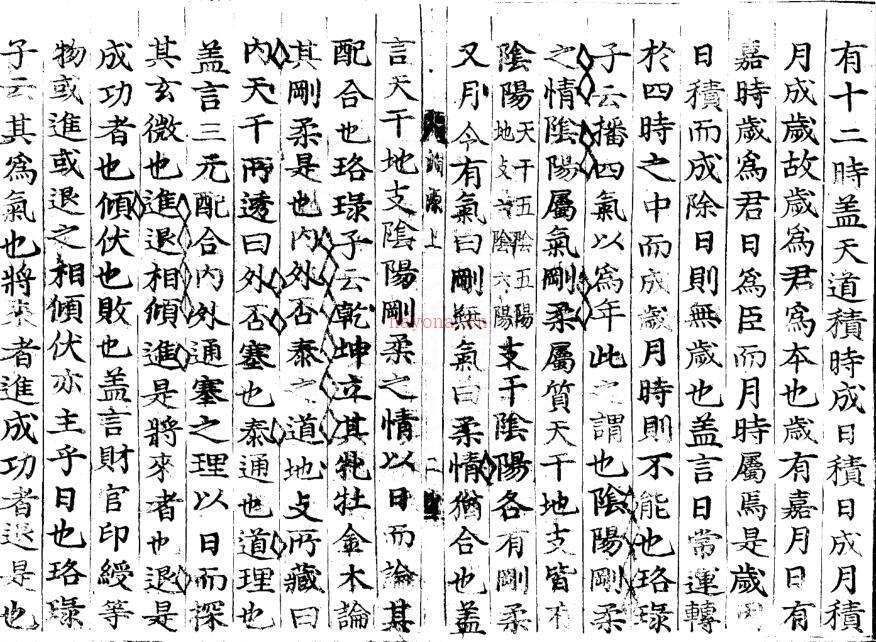 有十二時盖天道積時成日積日成月積
月成歲故歲爲君爲本也歲有嘉月日有
嘉時歲爲君日爲臣而月時屬焉是歲
日積而成除日則無歲也盖言日常運轉
於四時之中而成歲月時則不能也珞琭
子云播四氣以爲年此之謂也陰陽剛柔
之情陰陽屬氣剛柔屬質天干地支皆有
陰陽天干五陰五陽地支六陰六陽支干陰陽各有剛柔
又月令有氣曰剛無氣曰柔情猶合也盖
淵源上 二
言天干地支陰陽剛柔之情以日而論其
配合也珞琭子云乾坤立其牝牡金木論
其剛柔是也内外否泰之道地支所藏曰
内天干所透曰外否塞也泰通也道理也
盖言三元配合内外通塞之理以日而探
其玄微也進退相傾進是將來者也退是
成功者也傾伏也敗也盖言財官印綬等
物或進或退之相傾伏亦主乎日也珞琭
子云其爲氣也將來者進成功者退是也
nayona.cn